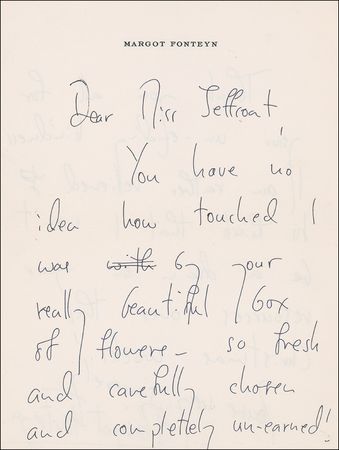 MARGOT FONTEYN
Dear Miss Jeffroat,
You have no
idea how touched I
was with by your
really beautiful box
of flowers – so fresh
and carefully chosen
and completely un-earned!